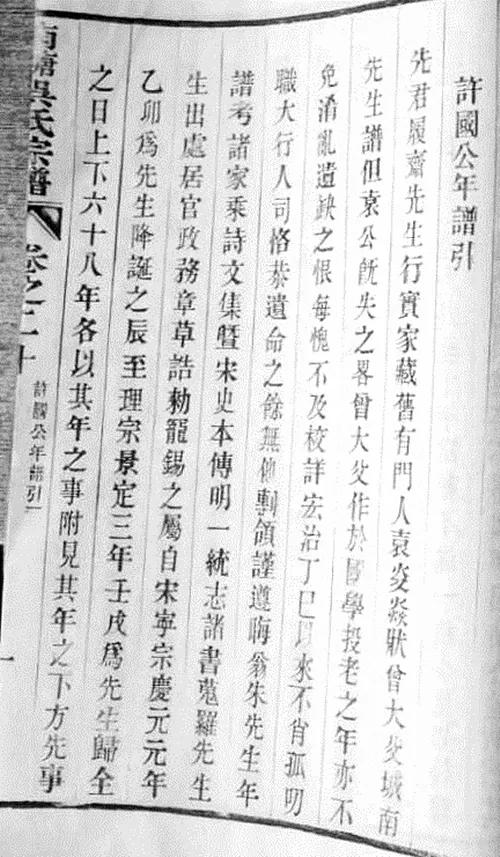 許國公年譜引
先君履齋先生行實家藏舊有門人袁炎焱狀曾大父城南
先生譜但袁公旣失之畧曾大父作於國學投老之年亦不
免淆亂遺缺之恨每愧不及校詳宏治丁巳以來不肖孤明
職大行人司恪恭遺命之餘無他剸領謹遵晦翁朱先生年
譜考諸家乘詩文集暨宋史本傳明一統志諸書蒐羅先生
生出處居官政務章草誥勅寵錫之屬自宋寧宗慶元元年
乙卯爲先生降誕之辰至理宗景定三年壬戌爲先生歸全
之日上下六十八年各以其年之事附見其年之下方先事
南塘吳氏宗譜
卷之二十
許國公年譜引
一